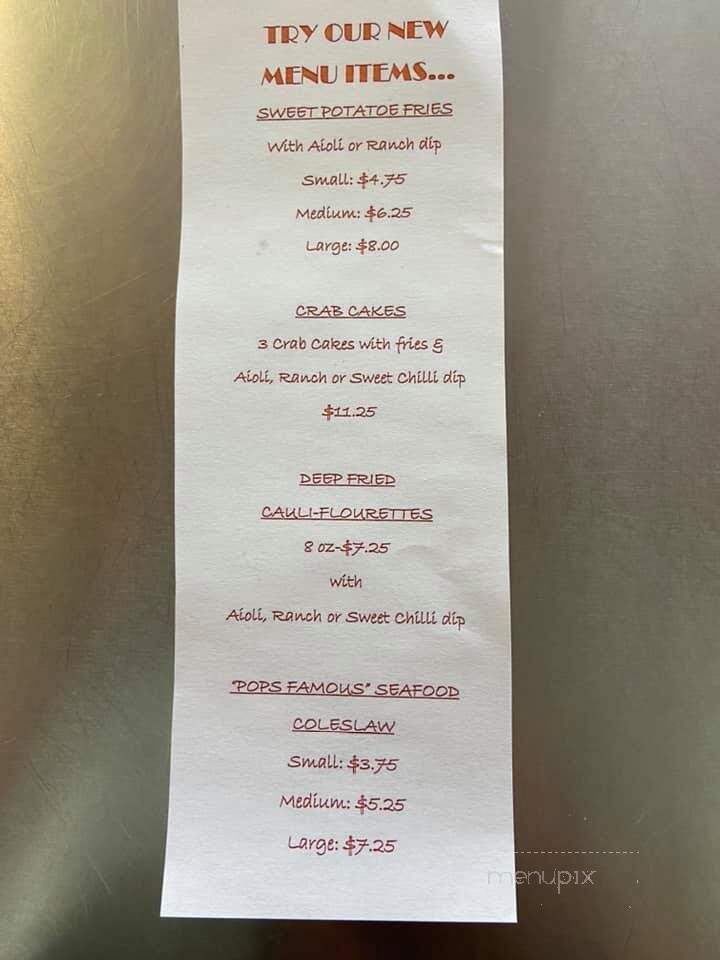 TRY OUR NEW
MENU ITEMS...
SWEET POTATOE FRIES
With Aioli or Ranch dip
Small: $4.75
Medium: $6.25
Large: $8.00
CRAB CAKES
3 Crab Cakes with fries &
Aioli, Ranch or Sweet Chilli dip
$11.25
DEEP FRIED
CAULI-FLOURETTES
8 oz-$7.25
with
Aioli, Ranch or Sweet Chilli dip
"POPS FAMOUS" SEAFOOD
COLESLAW
Small: $3.75
Medium: $5.25
Large: $7.25
menupix